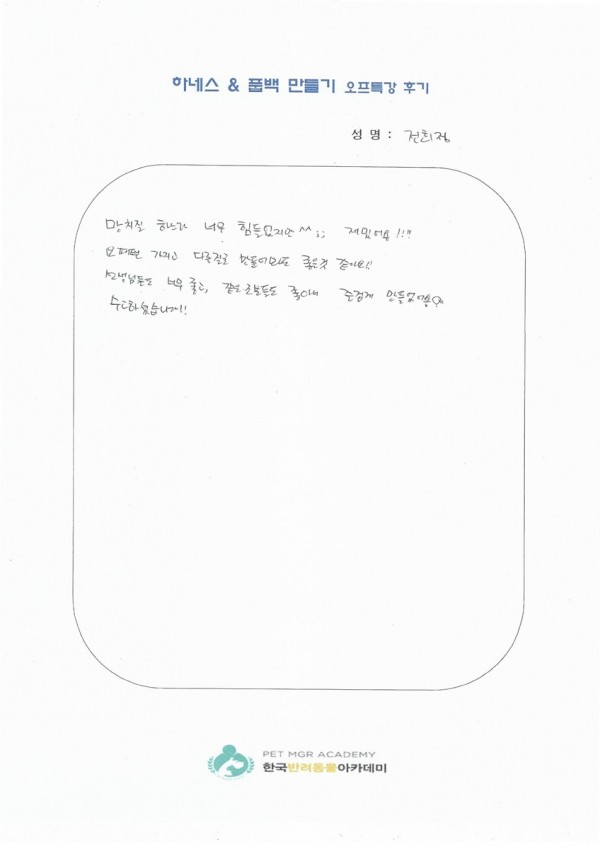 하네스 & 풉백 만들기 오프특강 후기
성 명 : 전희정
망치질 하느라 너무 힘들었지만 ^^;; 재밌어요!!!
요패턴 가지고 다른걸로 만들어봐도 좋을것 같아요!!
선생님들도 너무 좋고, 같은 분들도 좋아서 즐겁게 만들었어용
수고하셨습니다!!
PET MGR ACADEMY
한국반려동물아카데미